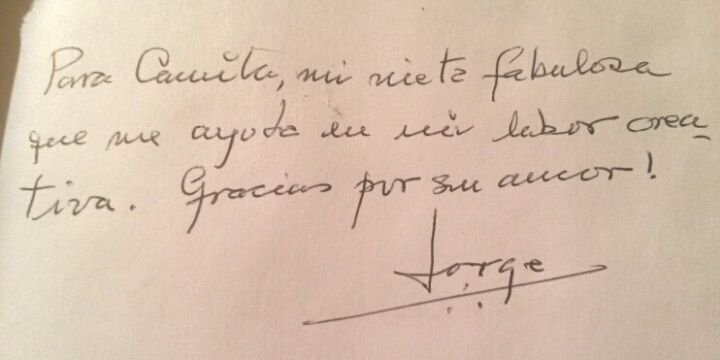 Para Camita, mi nieta fabulosa
que me ayuda en mi labor crea_
tiva. Gracias por su amor!
Jorge